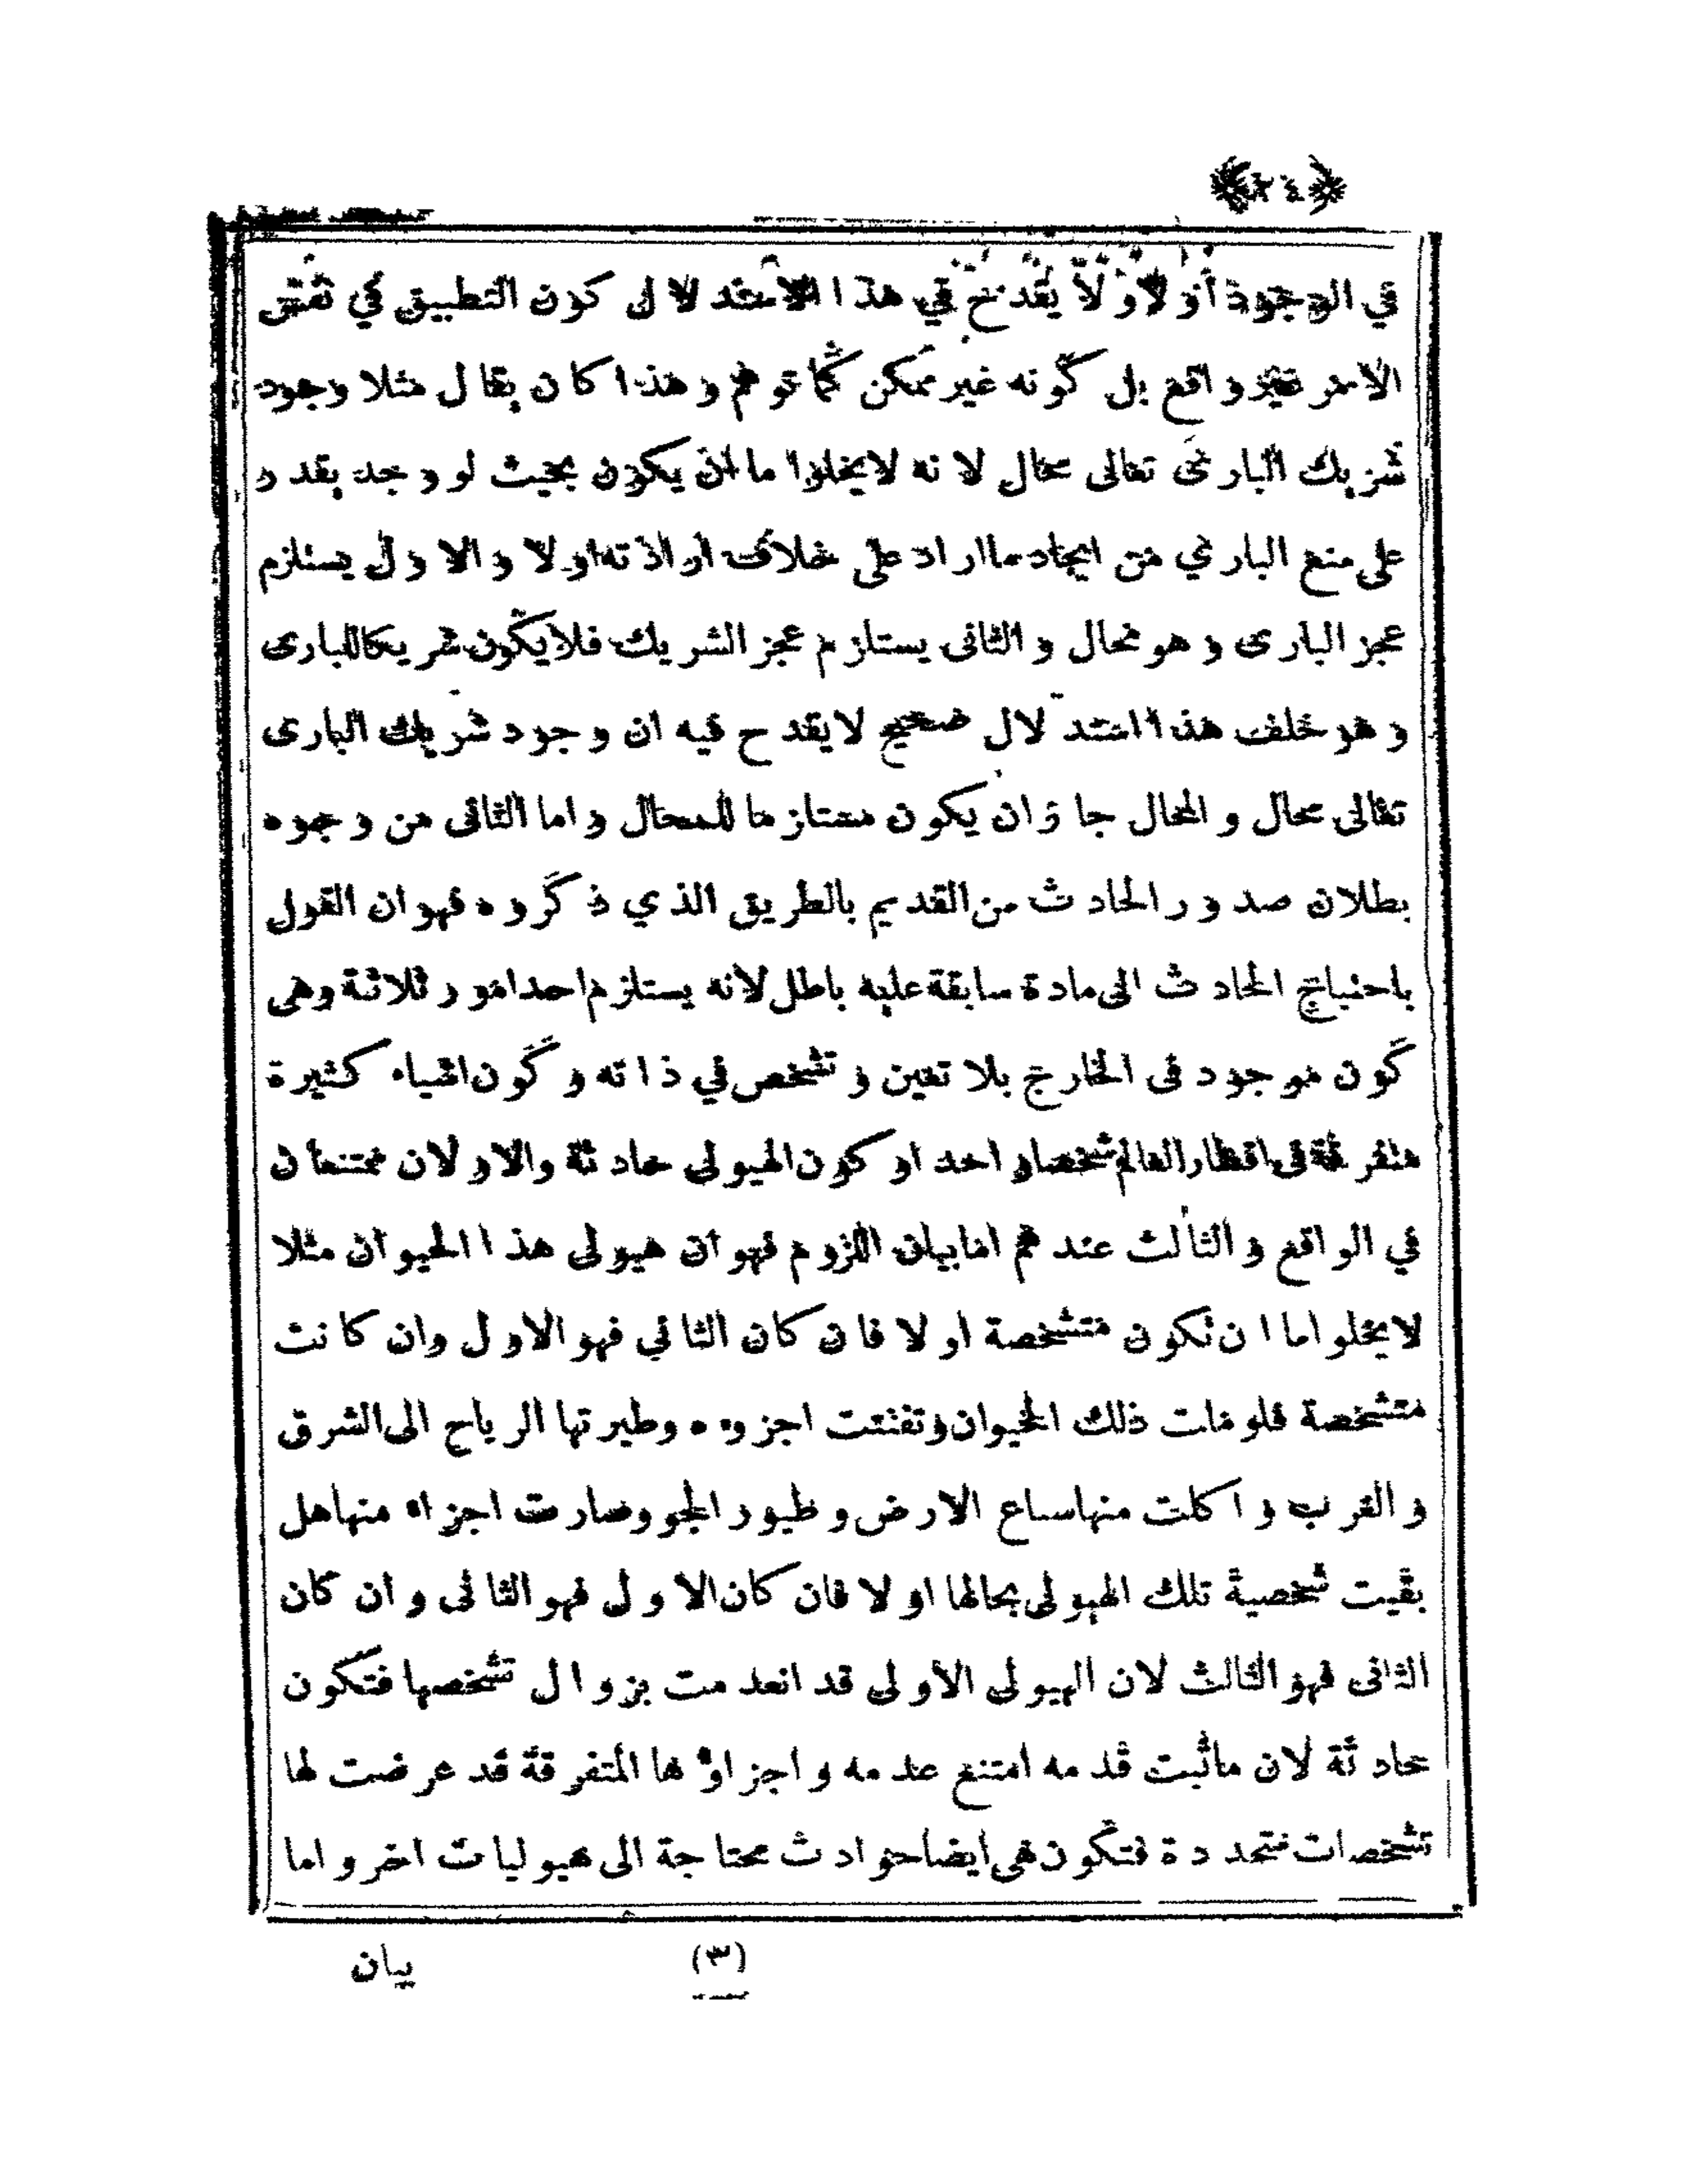 ﴿٢٤﴾
في الوجود أو لا ولا يقدح في هذا الاستدلال كون التطبيق في نفس
الامر غير واقع بل كونه غير ممكن كما توهم وهذا كان يقال مثلا وجود
شريك الباري تعالى محال لانه لا يخلوا ما ان يكون بحيث لو وجد يقدر
على منع الباري من ايجاد ما اراد على خلاف ارادته او لا والاول يستلزم
عجز البارى وهو محال والثانى يستلزم عجز الشريك فلا يكون شريكا للبارى
وهو خلف هذا استدلال صحيح لا يقدح فيه ان وجود شريك البارى
تعالى محال والمحال جاز ان يكون مستلزما للمحال واما الثانى من وجوه
بطلان صدور الحادث من القديم بالطريق الذي ذكروه فهو ان القول
باحتياج الحادث الى مادة سابقة عليه باطل لانه يستلزم احد امور ثلاثة وهى
كون موجود فى الخارج بلا تعين وتشخص في ذاته وكون اشياء كثيرة
متفرقة فى اقطار العالم شخصا واحد او كون الهيولى حادثة والاولان ممتنعان
في الواقع والثالث عندهم اما بيان اللزوم فهو ان هيولى هذا الحيوان مثلا
لا يخلو اما ان تكون متشخصة او لا فان كان الثاني فهو الاول وان كانت
متشخصة فلو مات ذلك الحيوان وتفتتت اجزوءه وطيرتها الرياح الى الشرق
والغرب واكلت منها سباع الارض وطيور الجو وصارت اجزاء منها هل
بقيت شخصية تلك الهيولى بحالها او لا فان كان الاول فهو الثانى وان كان
الثانى فهو الثالث لان الهيولى الاولى قد انعدمت بزوال تشخصها فتكون
حادثة لان ما ثبت قدمه امتنع عدمه واجزاؤها المتفرقة قد عرضت لها
تشخصات متجددة فتكون هى ايضا حوادث محتاجة الى هيوليات اخر واما
(٣) بيان